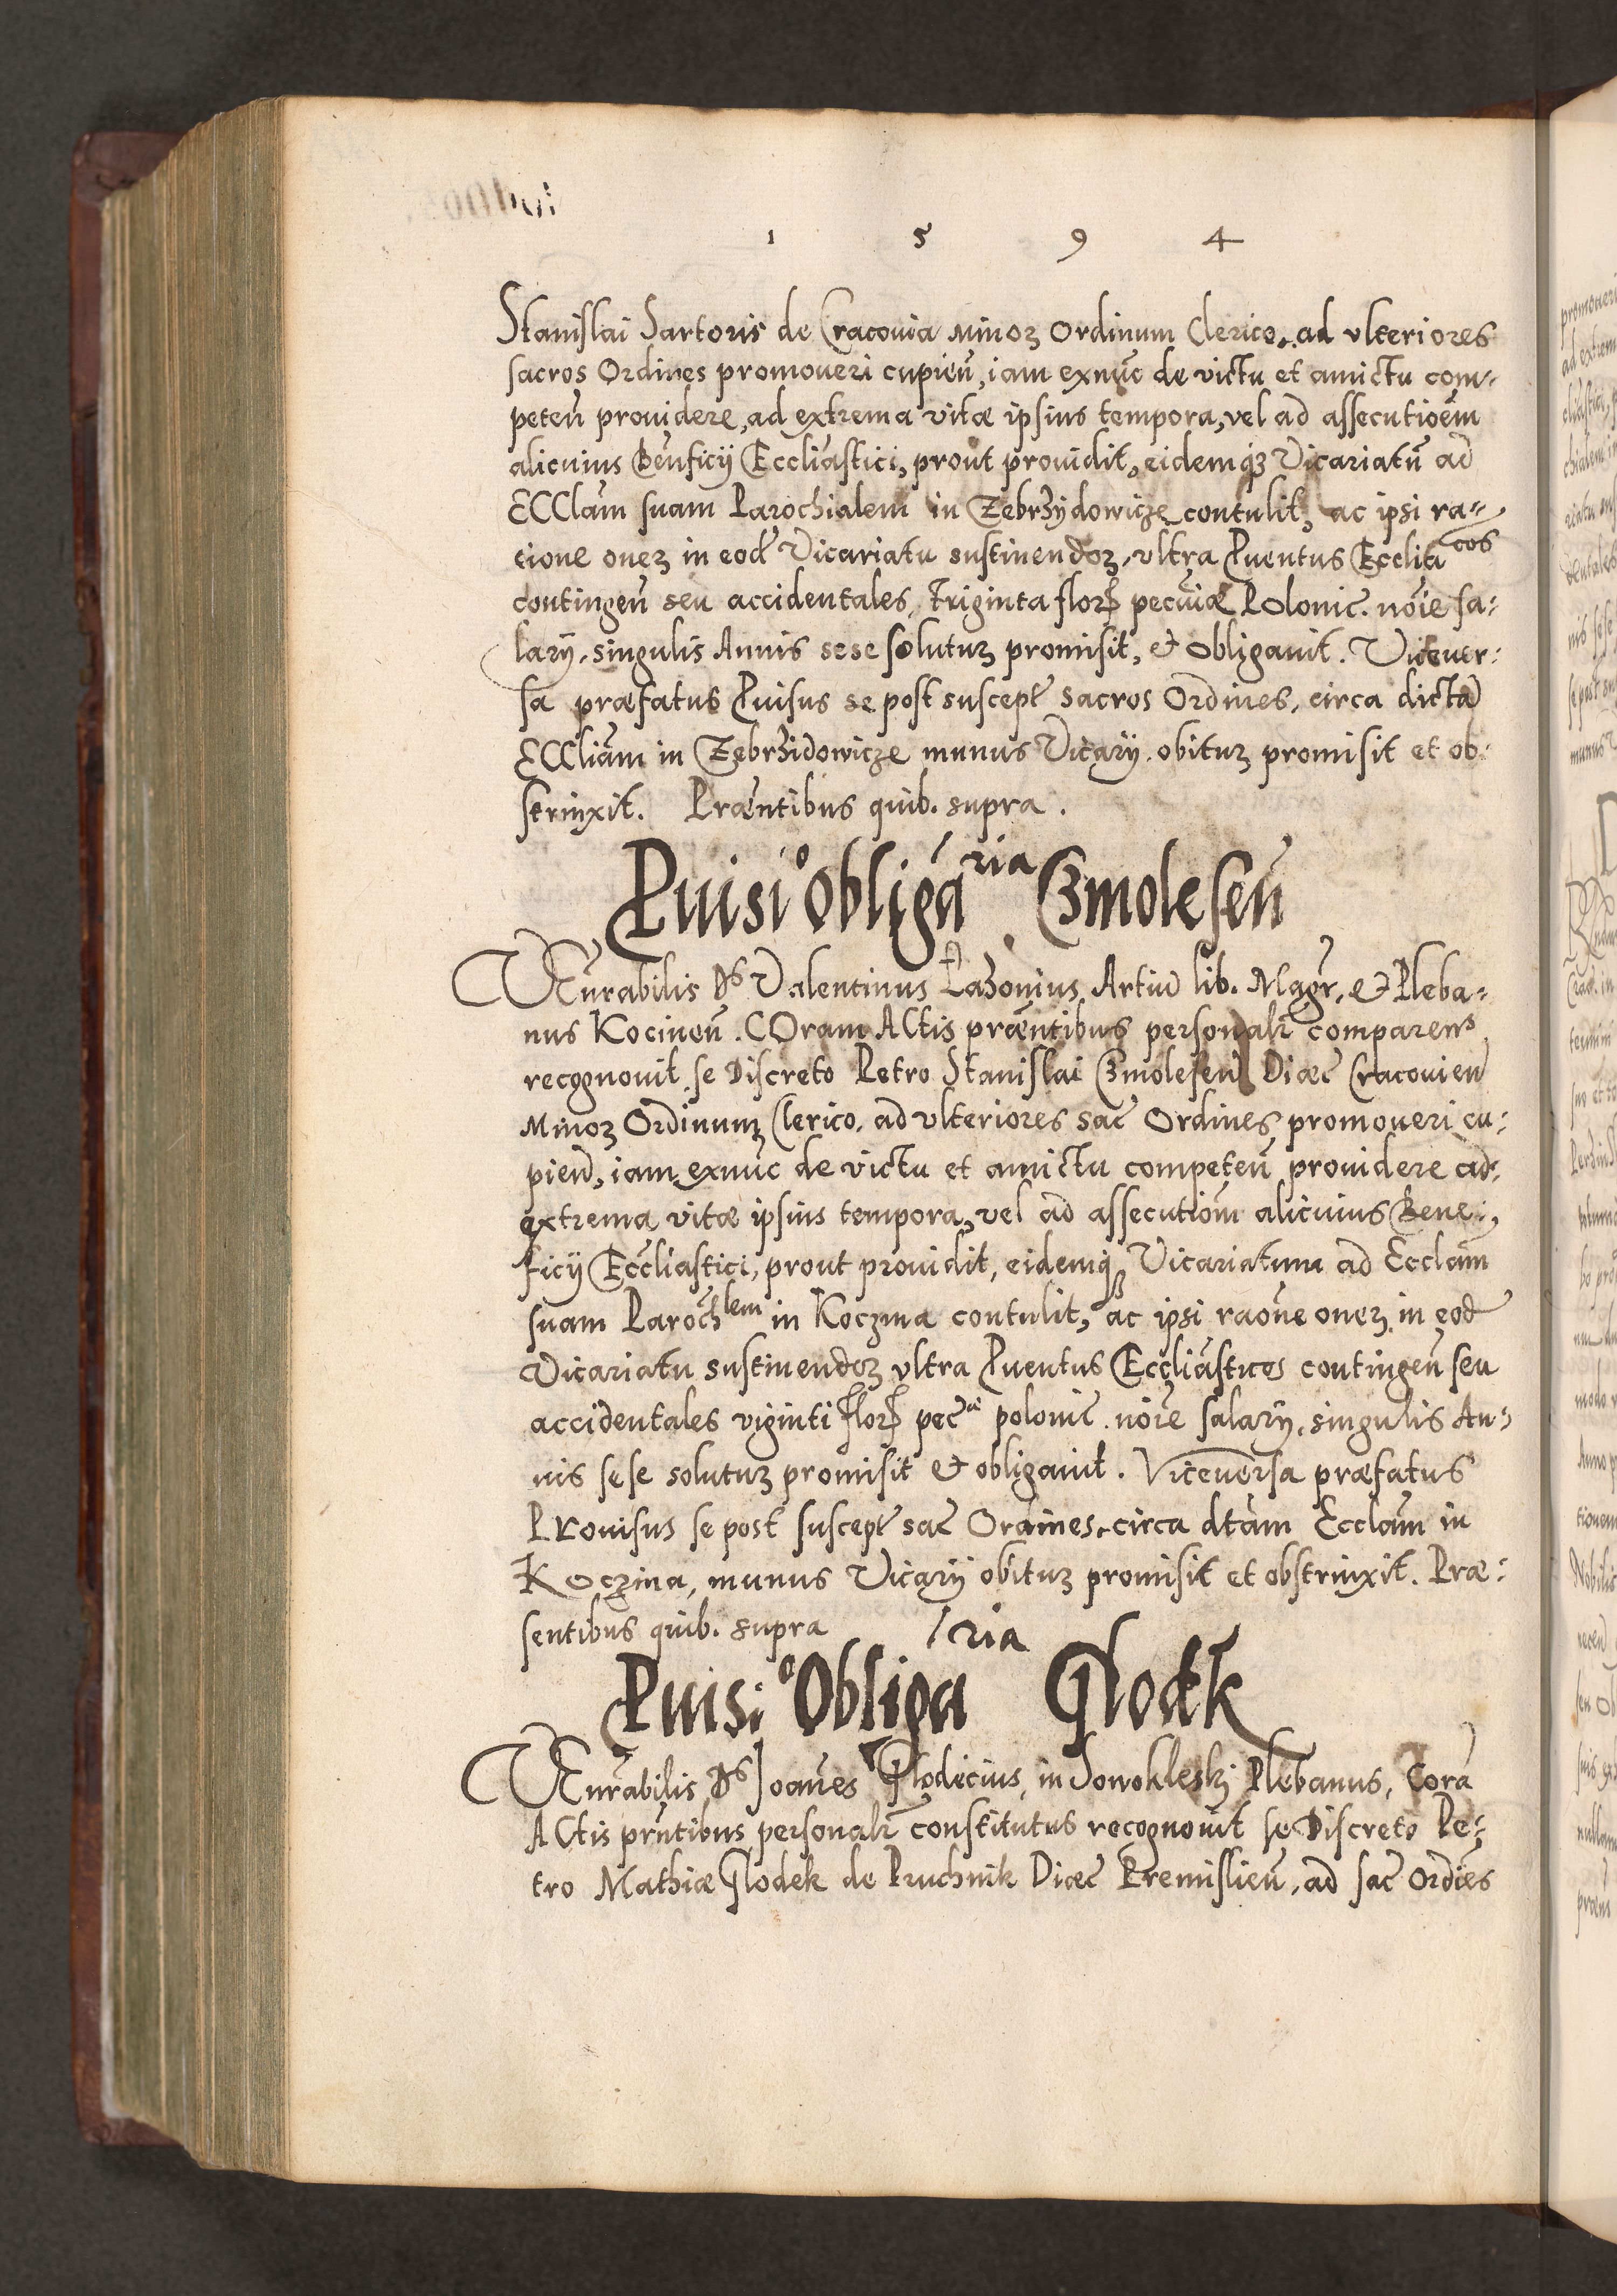 1 5 9 4
Stanislai Sartoris de Cracouia Minoꝝ Ordinum Clerico, ad vlteriores
sacros Ordines promoueri cupien̄, iam exnūc de victu et amictu com-
peten̄ prouidere, ad extrema vitæ ipsius tempora, vel ad assecutioēm
alicuius Benficÿ Eccliastici, prout prouidit, eidemqꝫ Vicariatū ad
ECClām suam Parochialem in Zebrzÿdowicze contulit, ac ipsi ra-
tione oneꝝ in eod Vicariatu sustinendoꝝ, vltra Puentus Ecclia cos
contingen̄ seu accidentales, Triginta flor pecuīæ Polonic. noīe sa-
larÿ, singulis Annis sese soluturꝫ promisit, et obligauit. Viceuer-
sa præfatus Puisus se post suscept sacros Ordines, circa dictā
ECCliām in Zebrzidowicze munus Vicarÿ obiturꝫ promisit et ob-
strinxit. Præntibus quib. supra.
Puisi⁰ obligaria Czmolesen̄
VEnrabilis Ds Valentinus Lazonius Artiū lib. Magr, et Pleba-
nus Kocinen̄. COram ACtis præntibus personalr comparens
recognouit se Discreto Petro Stanislai Czmolesen̄ Diæc Cracouien̄
Minoꝝ Ordinum Clerico, ad vlteriores sac Ordines promoueri cu-
pien̄, iam exnūc de victu et amictu competen̄ prouidere ad
extrema vitæ ipsius tempora, vel ad assecutiom alicuius Bene-
ficÿ Eccliastici, prout prouidit, eidemqꝫ Vicariatum ad Ecclām
suam Paroch lem in Koczina contulit, ac ipsi raōne oneꝝ in eod
Vicariatu sustinendoꝝ vltra Puentus Eccliāsticos contingen̄ seu
accidentales viginti flor pec æ polonic. noīe salarÿ, singulis An-
nis sese soluturꝫ promisit et obligauit. Viceuersa præfatus
PRouisus se post suscept sac Ordines, circa dtam Ecclām in
Koczina, munus Vicarÿ obiturꝫ promisit et obstrinxit. Præ-
sentibus quib. supra
Puisi⁰ Obligaria Glodek
VEnrabilis Ds Joanes Glodecius, in Plebanus, Corā
ACtis prntibus personalr constitutus recognouit se Discreto Pe-
tro Mathiæ Glodek de Pruchnik Diæc Premislien̄, ad sac Ordies